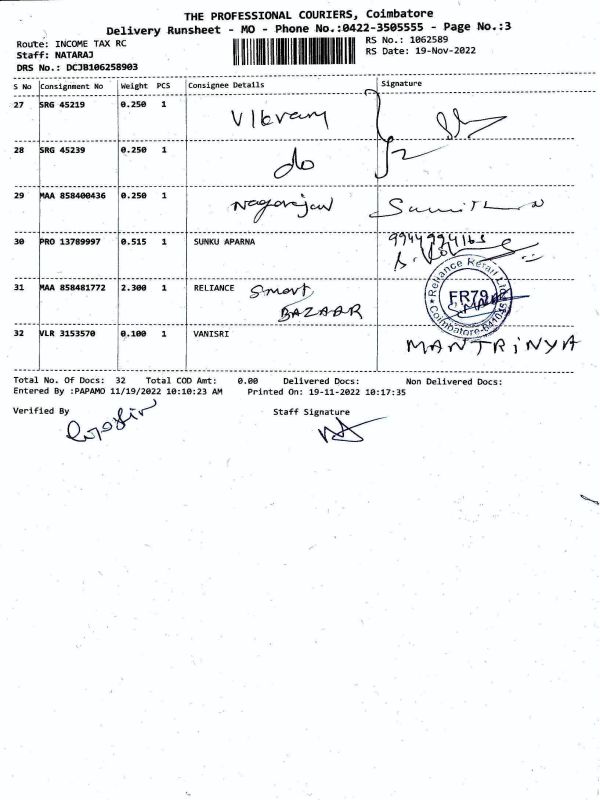 THE PROFESSIONAL COURIERS, Coimbatore
Delivery Runsheet - MO - Phone No.:0422-3505555 - Page No.:3
Route: INCOME TAX RC
RS No.: 1062589
Staff: NATARAJ
RS Date: 19-Nov-2022
DRS No.: DCJB106258903
S No Consignment No Weight PCS Consignee Details Signature
27 SRG 45219 0.250 1 Vikram
28 SRG 45239 0.250 1 do
29 MAA 858400436 0.250 1 Nagarajan
30 PRO 13789997 0.515 1 SUNKU APARNA 9944994165
31 MAA 858481772 2.300 1 RELIANCE Smart
BAZAAR
Reliance Retail Ltd
FR79
Coimbatore-641045
32 VLR 3153570 0.100 1 VANISRI MANTRiNYA
Total No. Of Docs: 32 Total COD Amt: 0.00 Delivered Docs: Non Delivered Docs:
Entered By :PAPAMO 11/19/2022 10:10:23 AM Printed On: 19-11-2022 10:17:35
Verified By Staff Signature